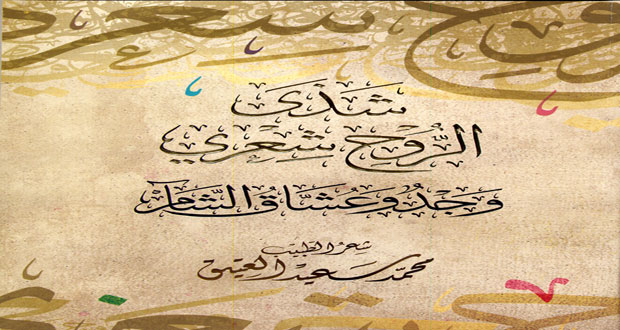 شَذَى
الرُّوحِ شِعْرِي
وَجْدٌ وَعُشَّاقُ الشَّآمِ
شعر الطبيب
محمد سعيد العتيق